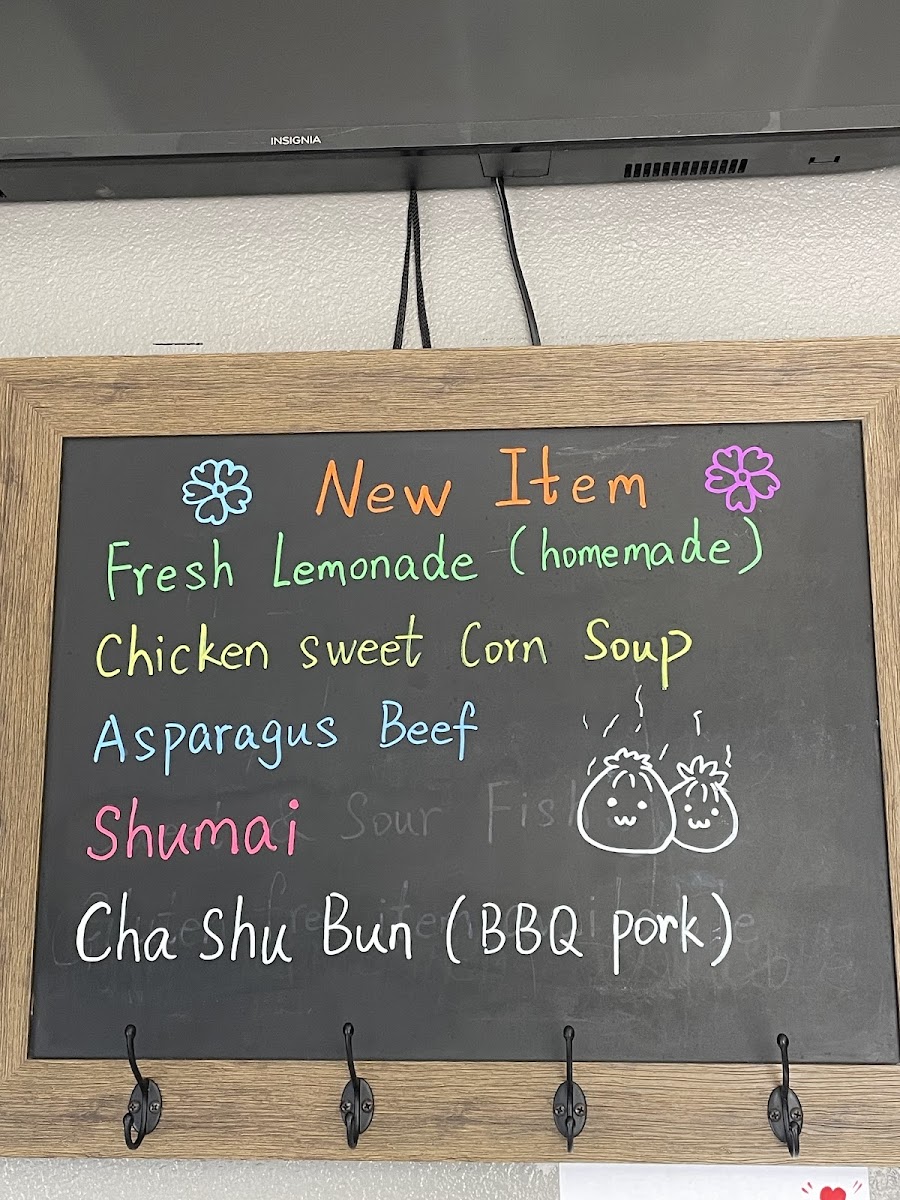 INSIGNIA
New Item
Fresh Lemonade (homemade)
Chicken sweet Corn Soup
Asparagus Beef
& Sour Fish
Shumai
Cha Shu Bun (BBQ pork)